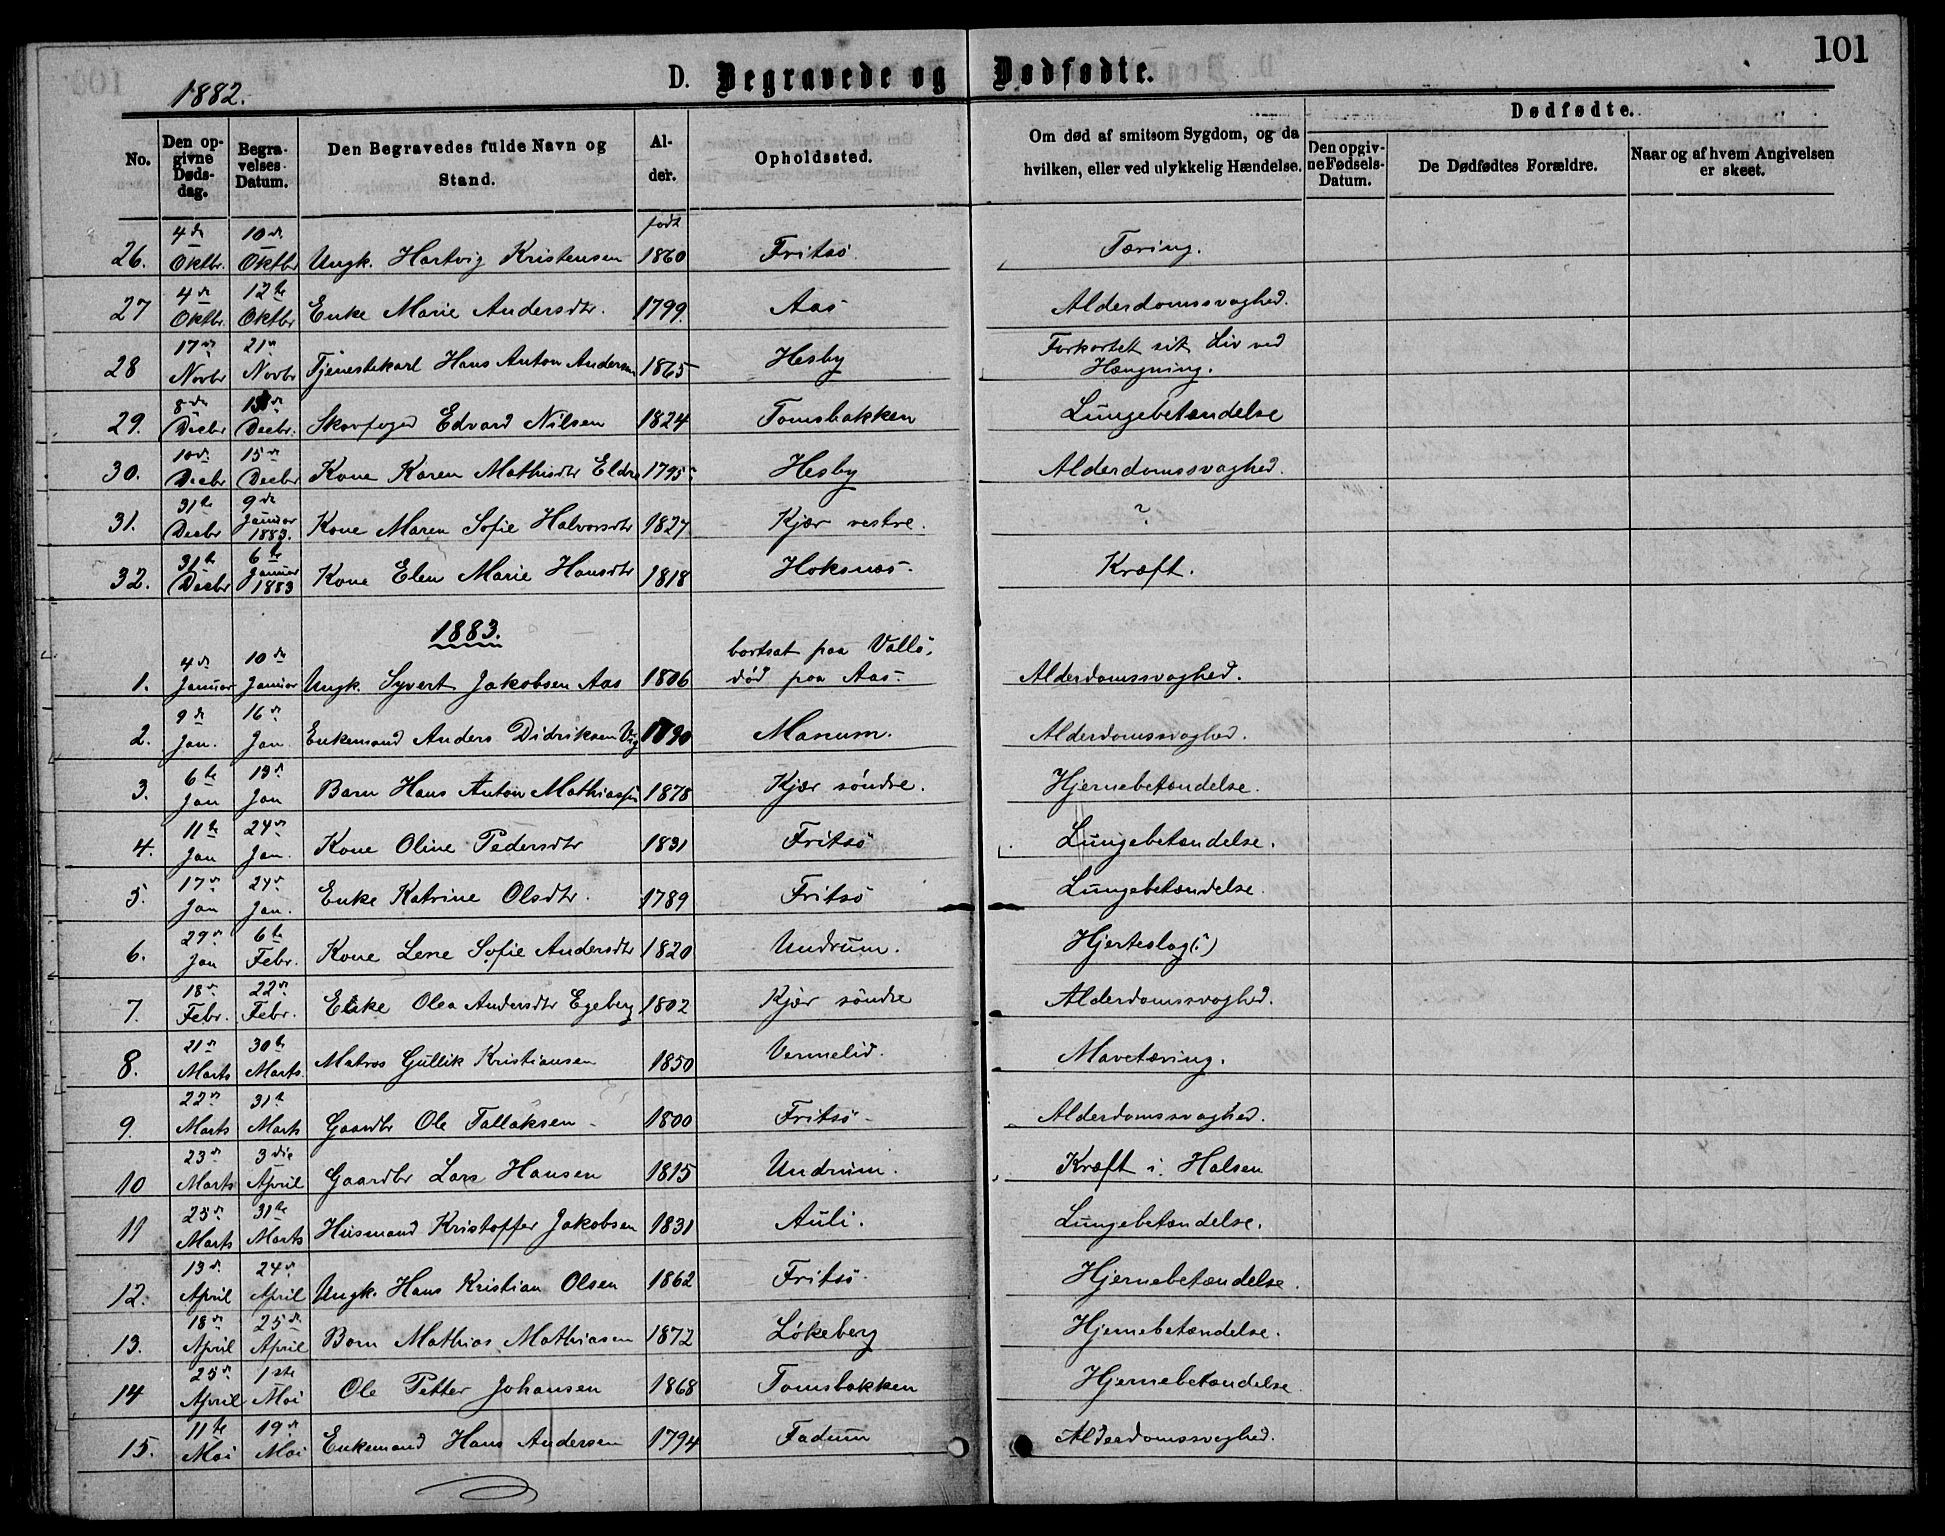 101
1882.
D. Begravede og Dødfødte.
No.
Den opgivne Dødsdag.
Begravelses Datum.
Den Begravedes fulde Navn og Stand.
Alder.
Opholdssted.
Om død af smitsom Sygdom, og da hvilken, eller ved ulykkelig Hændelse.
Dødfødte.
Den opgivne Fødsels-Datum.
De Dødfødtes Forældre.
Naar og af hvem Angivelsen er skeet.
født
26. 4de Oktbr. 10de Oktbr Ungk. Hartvig Kristensen 1860 Fritsø. Tæring.
27 4de Oktbr. 12te Oktbr Enke Marie Andersdtr. 1799. Aas Alderdomssvaghed.
28 17de Novbr 21de Novbr Tjenestekarl Hans Anton Andersen 1865 Hesby Forkortet sit Liv ved Hængning.
29. 8de Decbr Decbr. Skovfoged Edvard Nilsen 1824 Tomsbakken Lungebetændelse
30. 10de Decbr 15de Decbr Kone Karen Mathisdtr Eldre 1795 Hesby Alderdomssvaghed.
31. 31te Decbr 9de Januar 1883. Kone Maren Sofie Halvorsdtr 1827 Kjær vestre. ?
32. 31te Decbr 6te Januar 1883 Kone Elen Marie Hansdtr 1818 Hoksnæs. Kræft.
1883.
1. 4de Januar 10de Januar Ungk. Syvert Jakobsen Aas 1806 bortsat paa Vallø, død paa Aas. Alderdomssvaghed.
2. 9de Jan. 16de Jan. Enkemand Anders Didriksen 1790 Manum. Alderdomssvaghed.
3. 6te Jan 13de Jan Barn Hans Anton Mathiassen 1878 Kjær søndre. Hjernebetændelse.
4. 11te Jan 24de Jan. Kone Oline Pedersdtr 1831 Fritsø Lungebetændelse.
5. 17de Jan 24de Jan. Enke Katrine Olsdtr. 1789 Fritsø Lungebetændelse.
6. 29de Jan 6te Febr. Kone Lene Sofie Andersdtr 1820 Undrum. Hjerteslag (?)
7. 18de Febr. 22de Febr. Enke Olea Andersdtr Egeberg 1802 Kjær søndre Alderdomssvaghed.
8. 21de Marts 30te Marts. Matros Gullik Kristiansen 1850 Vermelid. Mavetæring.
9. 22de Marts 31te Marts Gaardbr Ole Tallaksen 1800 Fritsø Alderdomssvaghed.
10 23de Marts 3die April Gaardbr Lars Hansen 1815 Undrum. Kræft i Halsen
11 25de Marts 31te Marts Husmand Kristoffer Jakobsen 1831 Auli. Lungebetændelse.
12. 13de April 24de April Ungk. Hans Kristian Olsen 1862 Fritsø. Hjernebetændelse.
13. 18de April 25de April Barn Mathias Mathiasen 1872 Løkeberg Hjernebetændelse.
14 25de April 1ste Mai Ole Petter Johansen 1868 Tomsbakken Hjernebetændelse.
15. 11te Mai 19de Mai Enkemand Hans Andersen 1794 Fadum Alderdomssvaghed.